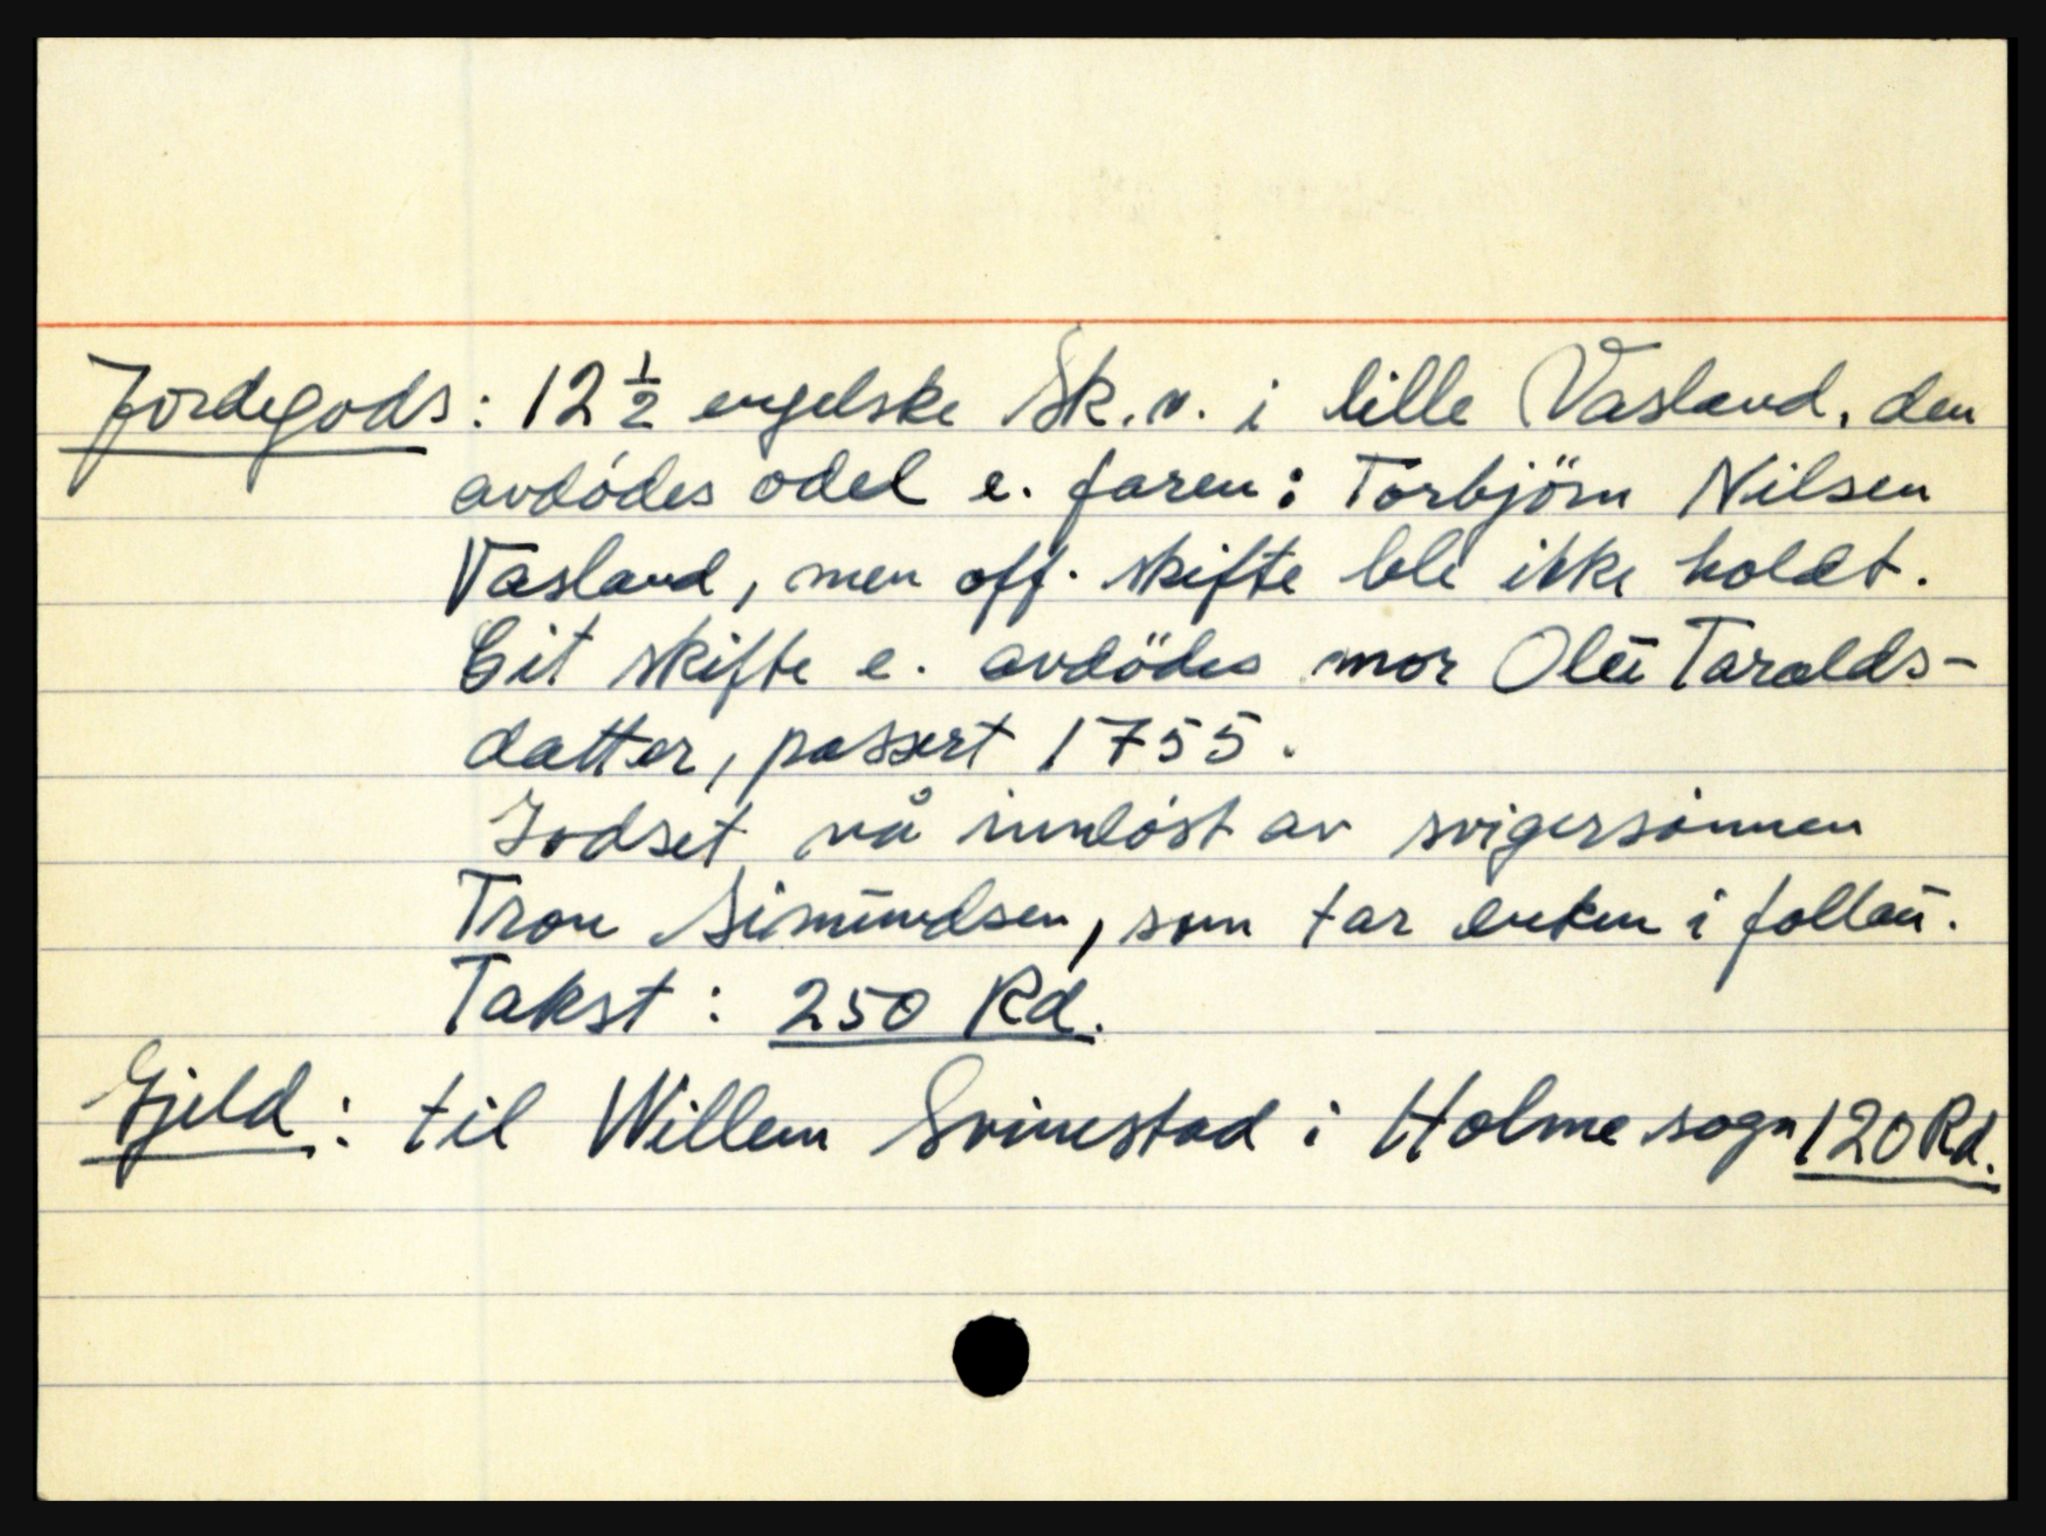 Jordegods: 12 ½ engelske Sk. v. i lille Vasland, den
avdódes odel e. faren: Torbjörn Nilsen
Vasland, men off. skifte ble ikke holdt.
Cit skifte e. avdödes mor Olū Taralds-
datter, passert 1755.
Godset nå innlóst av svigersónnen
Tron Simūndsen, som tar enken i follaū.
Takst: 250 Rd.
Gjeld: til Willem Svinestad i Holme sogn 120 Rd.